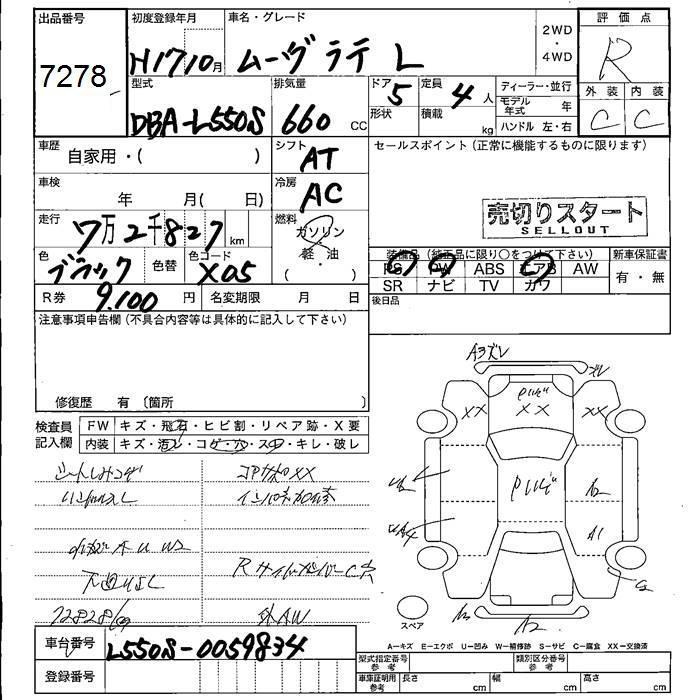 出品番号
7278
初度登録年月
H17 10月
車名・グレード
ムーヴ ラテ L
2WD
・
4WD
評価点
R
外装
内装
C
C
型式
DBA-L550S
排気量
660 CC
ドア
5
形状
定員
4 人
積載
kg
ディーラー・並行
モデル年式 年
ハンドル 左・右
車歴
自家用・( )
シフト
AT
車検
年 月( 日)
冷房
AC
走行
7万2千827 km
燃料
ガソリン
軽・油
( )
色
ブラック
色替
色コード
X05
R券 9,100 円
名変期限 月 日
セールスポイント (正常に機能するものに限ります)
売切りスタート
SELLOUT
装備品 (純正品に限り○をつけて下さい)
PS PW ABS エアB AW
SR ナビ TV カワ
新車保証書
有・無
後日品
注意事項申告欄 (不具合内容等は具体的に記入して下さい)
修復歴 有 〔箇所 〕
検査員記入欄
FW キズ・飛石・ヒビ割・リペア跡・X要
内装 キズ・汚レ・コゲ・穴・スレ・キレ・破レ
コアサポXX
下廻りサビ
外AW
A3ズレ
ズレ
XX
XX
XX
A2
A1
A2
スペア
A―キズ E―エクボ U―凹み W―補修跡 S―サビ C―腐食 XX―交換済
車台番号 L550S-0059834
登録番号
型式指定番号 参考
類別区分番号 参考
車庫証明用 参考
長さ cm
幅 cm
高さ cm